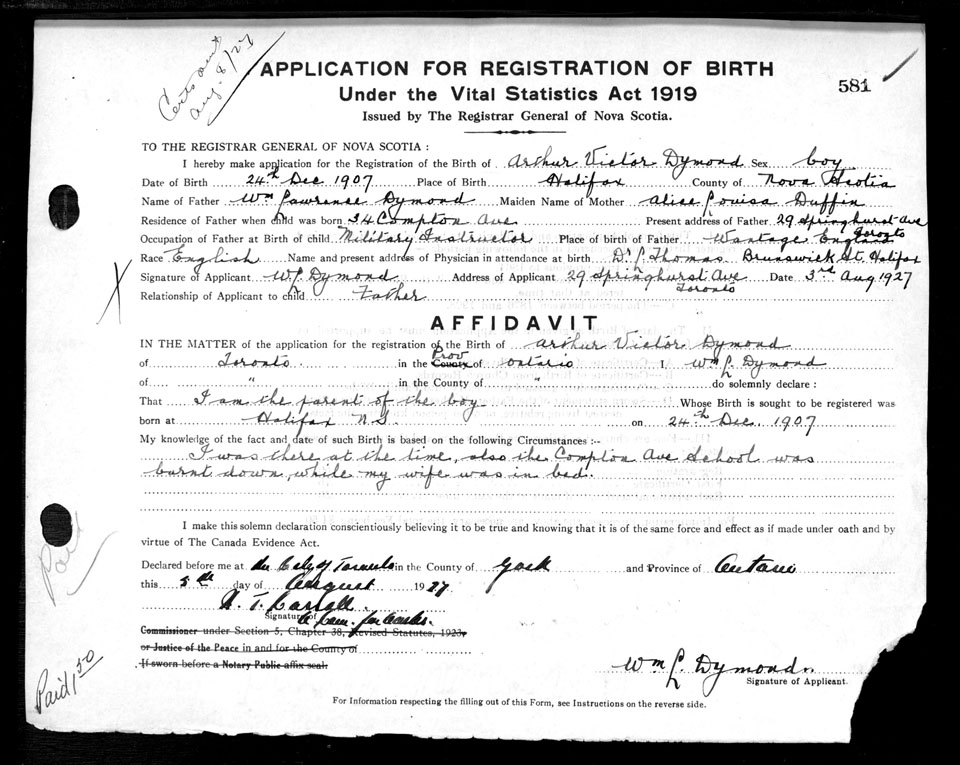 Certs sent
Aug. 8/27
581
APPLICATION FOR REGISTRATION OF BIRTH
Under the Vital Statistics Act 1919
Issued by The Registrar General of Nova Scotia.
TO THE REGISTRAR GENERAL OF NOVA SCOTIA:
I hereby make application for the Registration of the Birth of Arthur Victor Dymond Sex boy
Date of Birth 24th Dec 1907 Place of Birth Halifax County of Nova Scotia
Name of Father Wm Lawrence Dymond Maiden Name of Mother Alice Louisa Duffin
Residence of Father when child was born 34 Compton Ave Present address of Father 29 Springhurst Ave
Toronto
Occupation of Father at Birth of child Military Instructor Place of birth of Father Wantage England
Race English Name and present address of Physician in attendance at birth Dr L Thomas Brunswick St. Halifax
Signature of Applicant W L Dymond Address of Applicant 29 Springhurst Ave Date 3rd Aug 1927
Toronto
Relationship of Applicant to child Father
AFFIDAVIT
IN THE MATTER of the application for the registration of the Birth of Arthur Victor Dymond
Prov
of Toronto in the County of Ontario I, Wm L Dymond
of " in the County of " do solemnly declare:
That I am the parent of the boy Whose Birth is sought to be registered was
born at Halifax N.S. on 24th Dec. 1907
My knowledge of the fact and date of such Birth is based on the following Circumstances:-
I was there at the time, also the Compton Ave School was
burnt down, while my wife was in bed.
I make this solemn declaration conscientiously believing it to be true and knowing that it is of the same force and effect as if made under oath and by
virtue of The Canada Evidence Act.
Declared before me at the City of Toronto in the County of York and Province of Ontario
this 5th day of August 1927
Signature of
A Com. for
Commissioner under Section 5, Chapter 38, Revised Statutes, 1923,
or Justice of the Peace in and for the County of
If sworn before a Notary Public affix seal.
Wm L Dymond.
Signature of Applicant.
For Information respecting the filling out of this Form, see Instructions on the reverse side.
Paid 1.50